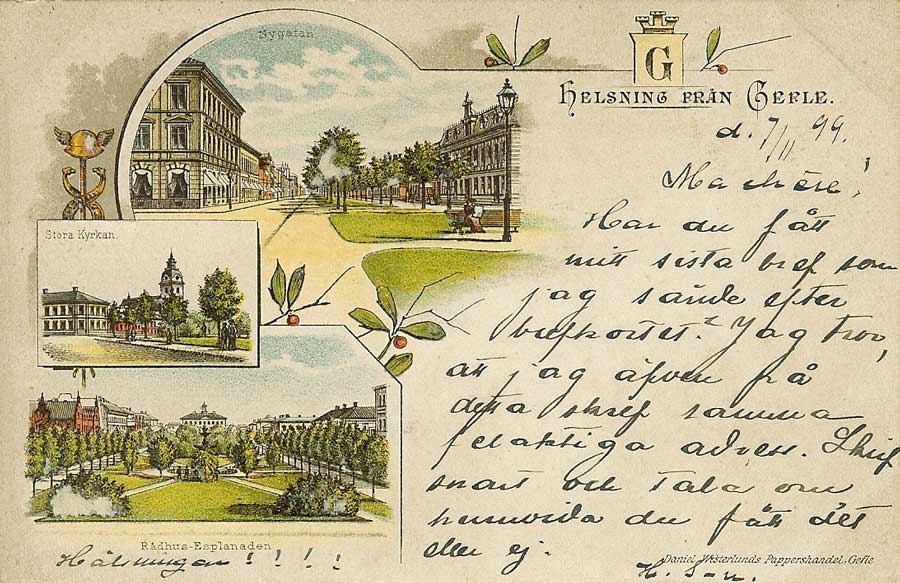 Nygatan
G
HELSNING FRÅN GEFLE.
d. 7/11 99.
Ma chère!
Har du fått
mitt sista bref som
jag sände efter
brefkortet? Jag tror,
att jag äfven på
detta skref samma
felaktiga adress. Skrif
snart och tala om
huruvida du fått det
eller ej.
Stora Kyrkan.
Rådhus-Esplanaden
Hälsningar! ! ! !
Daniel Westerlunds Pappershandel, Gefle
H.